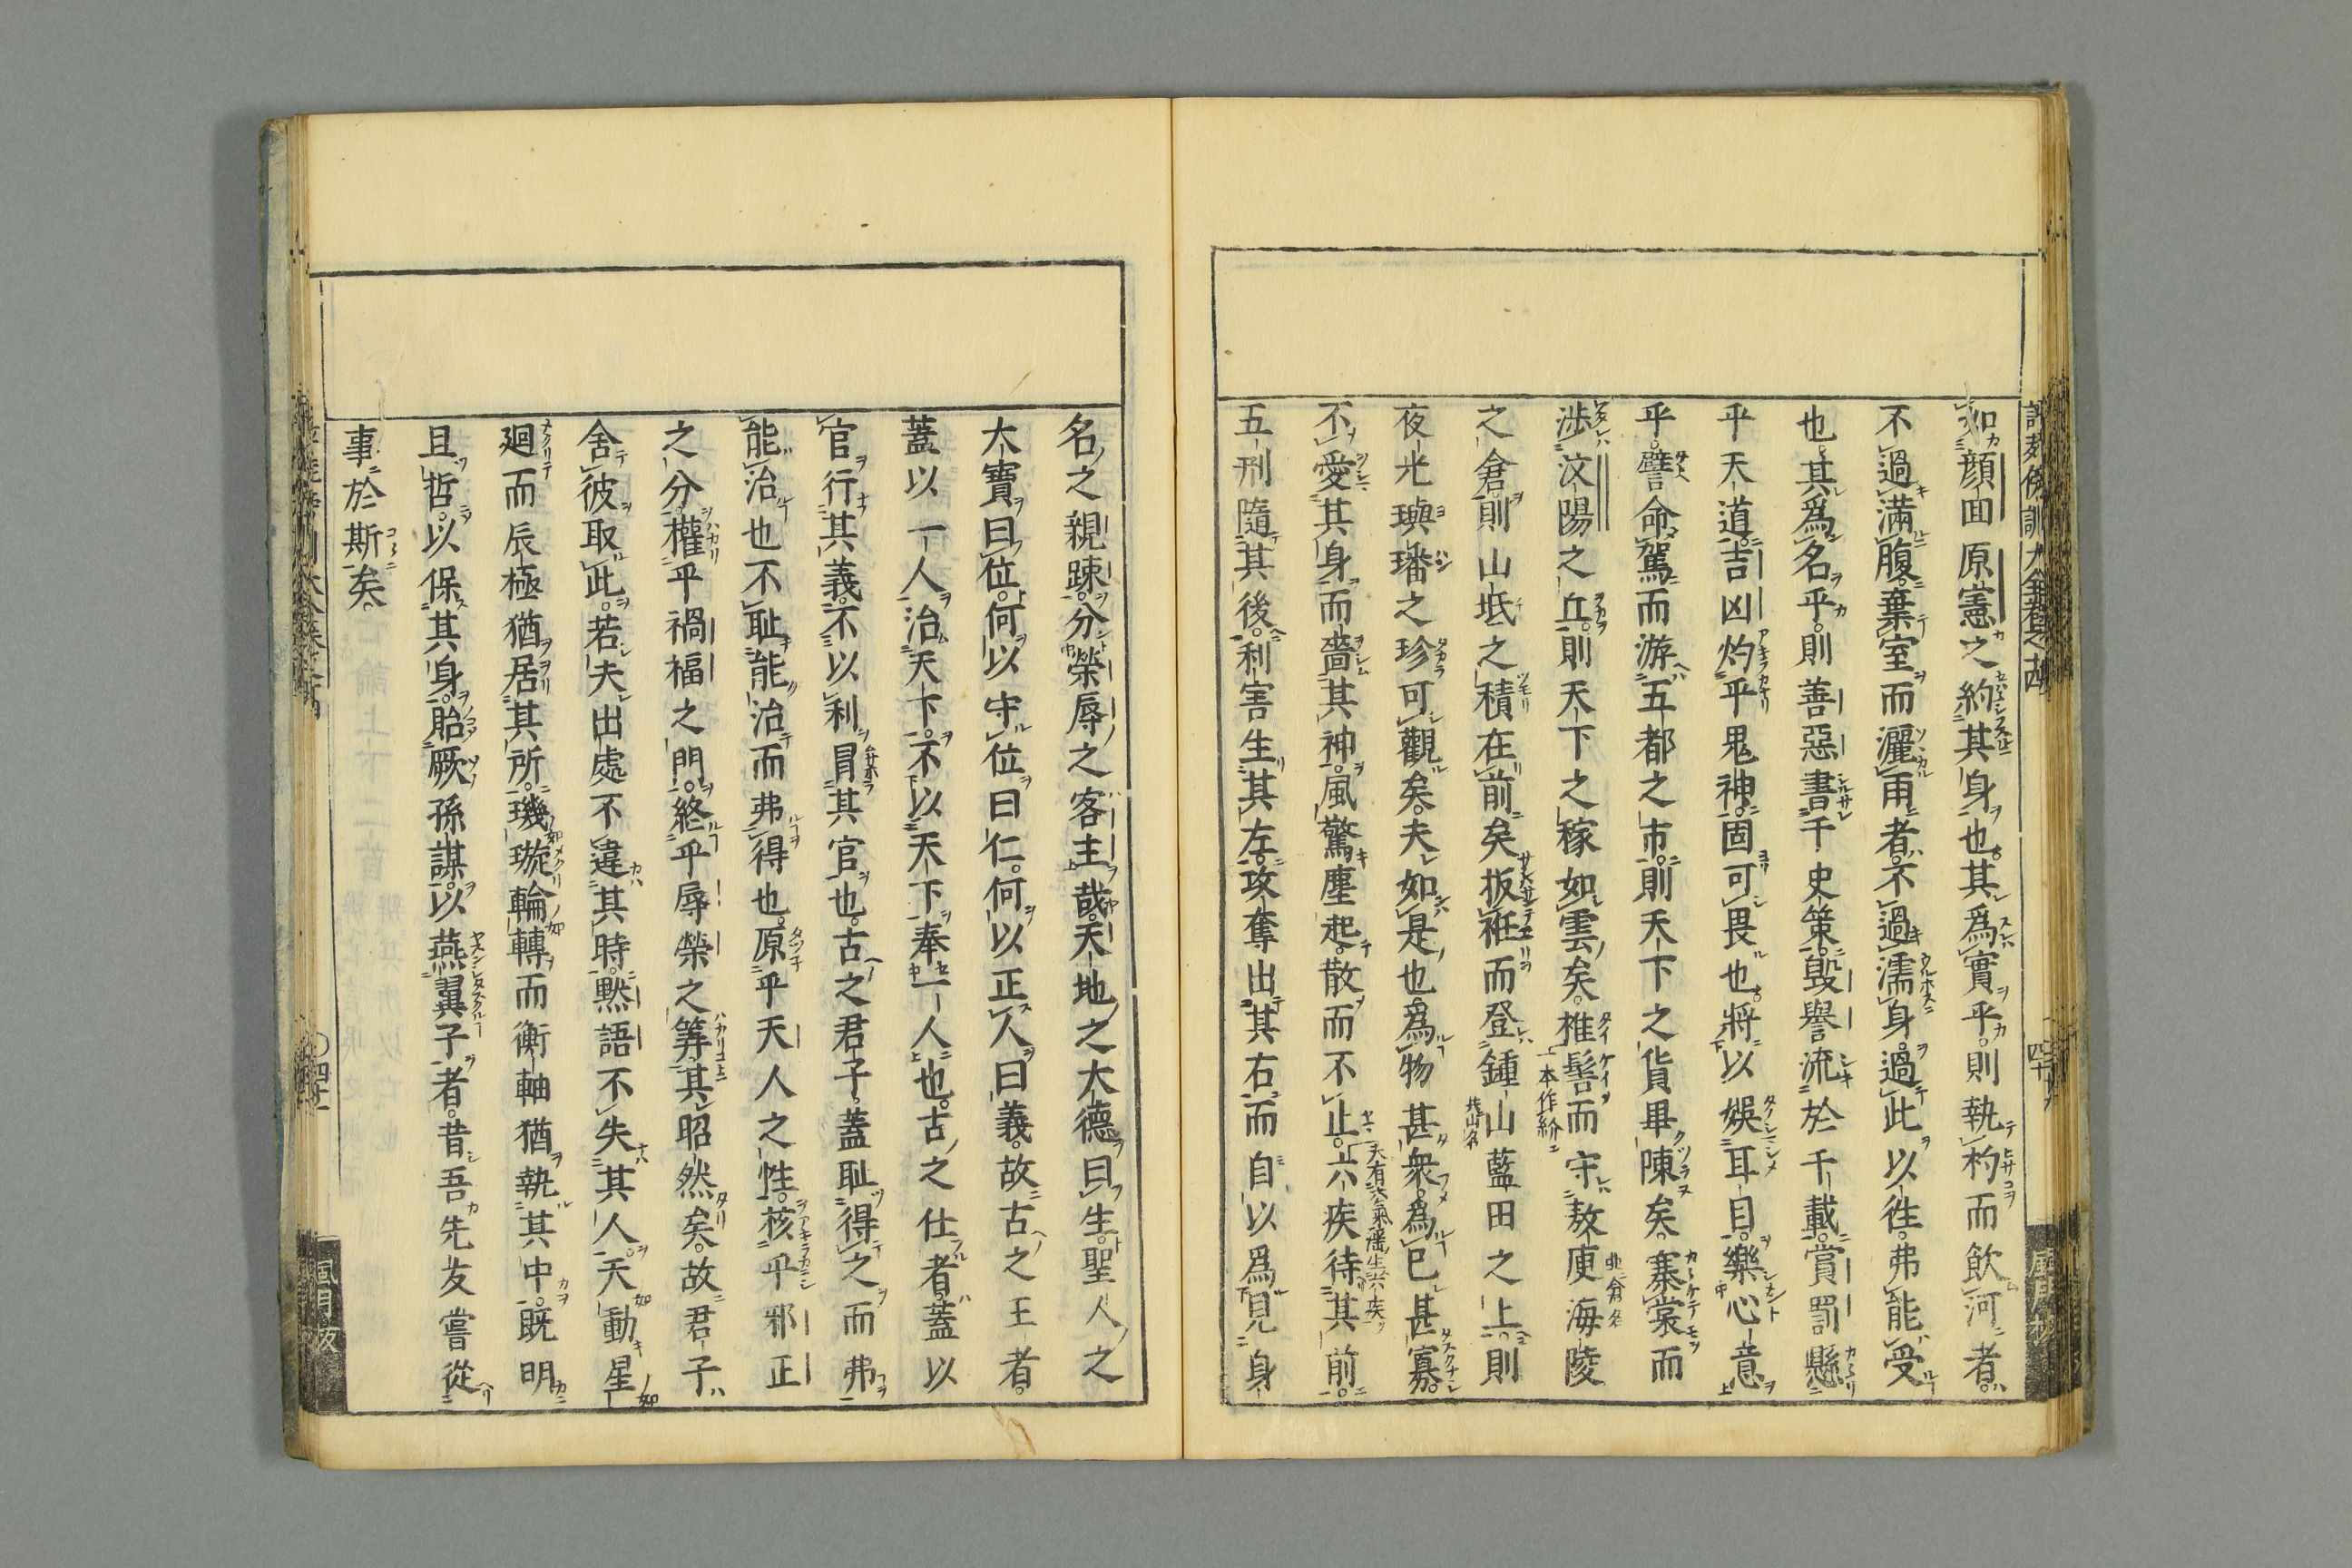 如顔回原憲之約其身也其爲實乎。則執杓而飲河者。
不過滿腹。棄室而灑雨者。不過濡身。過此以徃。弗能受
也。其爲名乎。則善惡書千史策。毀譽流於千載。賞罰懸
乎天道。吉凶灼乎鬼神。固可畏也。將以娛耳目。樂心意
乎。譬命駕而游五都之市。則天下之貨畢陳矣。褰裳而
渉汶陽之丘。則天下之稼如雲矣。椎髻而守敖庾海陵
之倉。則山坻之積在前矣。扱衽而登鍾山藍田之上。則
夜光璵璠之珍可觀矣。夫如是也。爲物甚衆。爲已甚寡。
不愛其身而嗇其神。風驚塵起。散而不止。六疾待其前。
五刑隨其後。利害生其左。攻奪出其右。而自以爲見身
名之親踈。分榮辱之客主哉。天地之大德曰生。聖人之
大寶曰位。何以守位曰仁。何以正人曰義。故古之王者。
蓋以一人治天下。不以天下奉一人也。古之仕者。蓋以
官行其義。不以利冒其官也。古之君子。蓋耻得之而弗
能治也。不耻能治而弗得也。原乎天人之性。核乎邪正
之分。權乎禍福之門。終乎辱榮之筭。其昭然矣。故君子
舍彼取此。若夫出處不違其時。黙語不失其人。天動星
廻而辰極猶居其所。璣璇輪轉而衡軸猶執其中。既明
且哲。以保其身。貽厥孫謀。以燕翼子者。昔吾先友嘗從
事於斯矣。